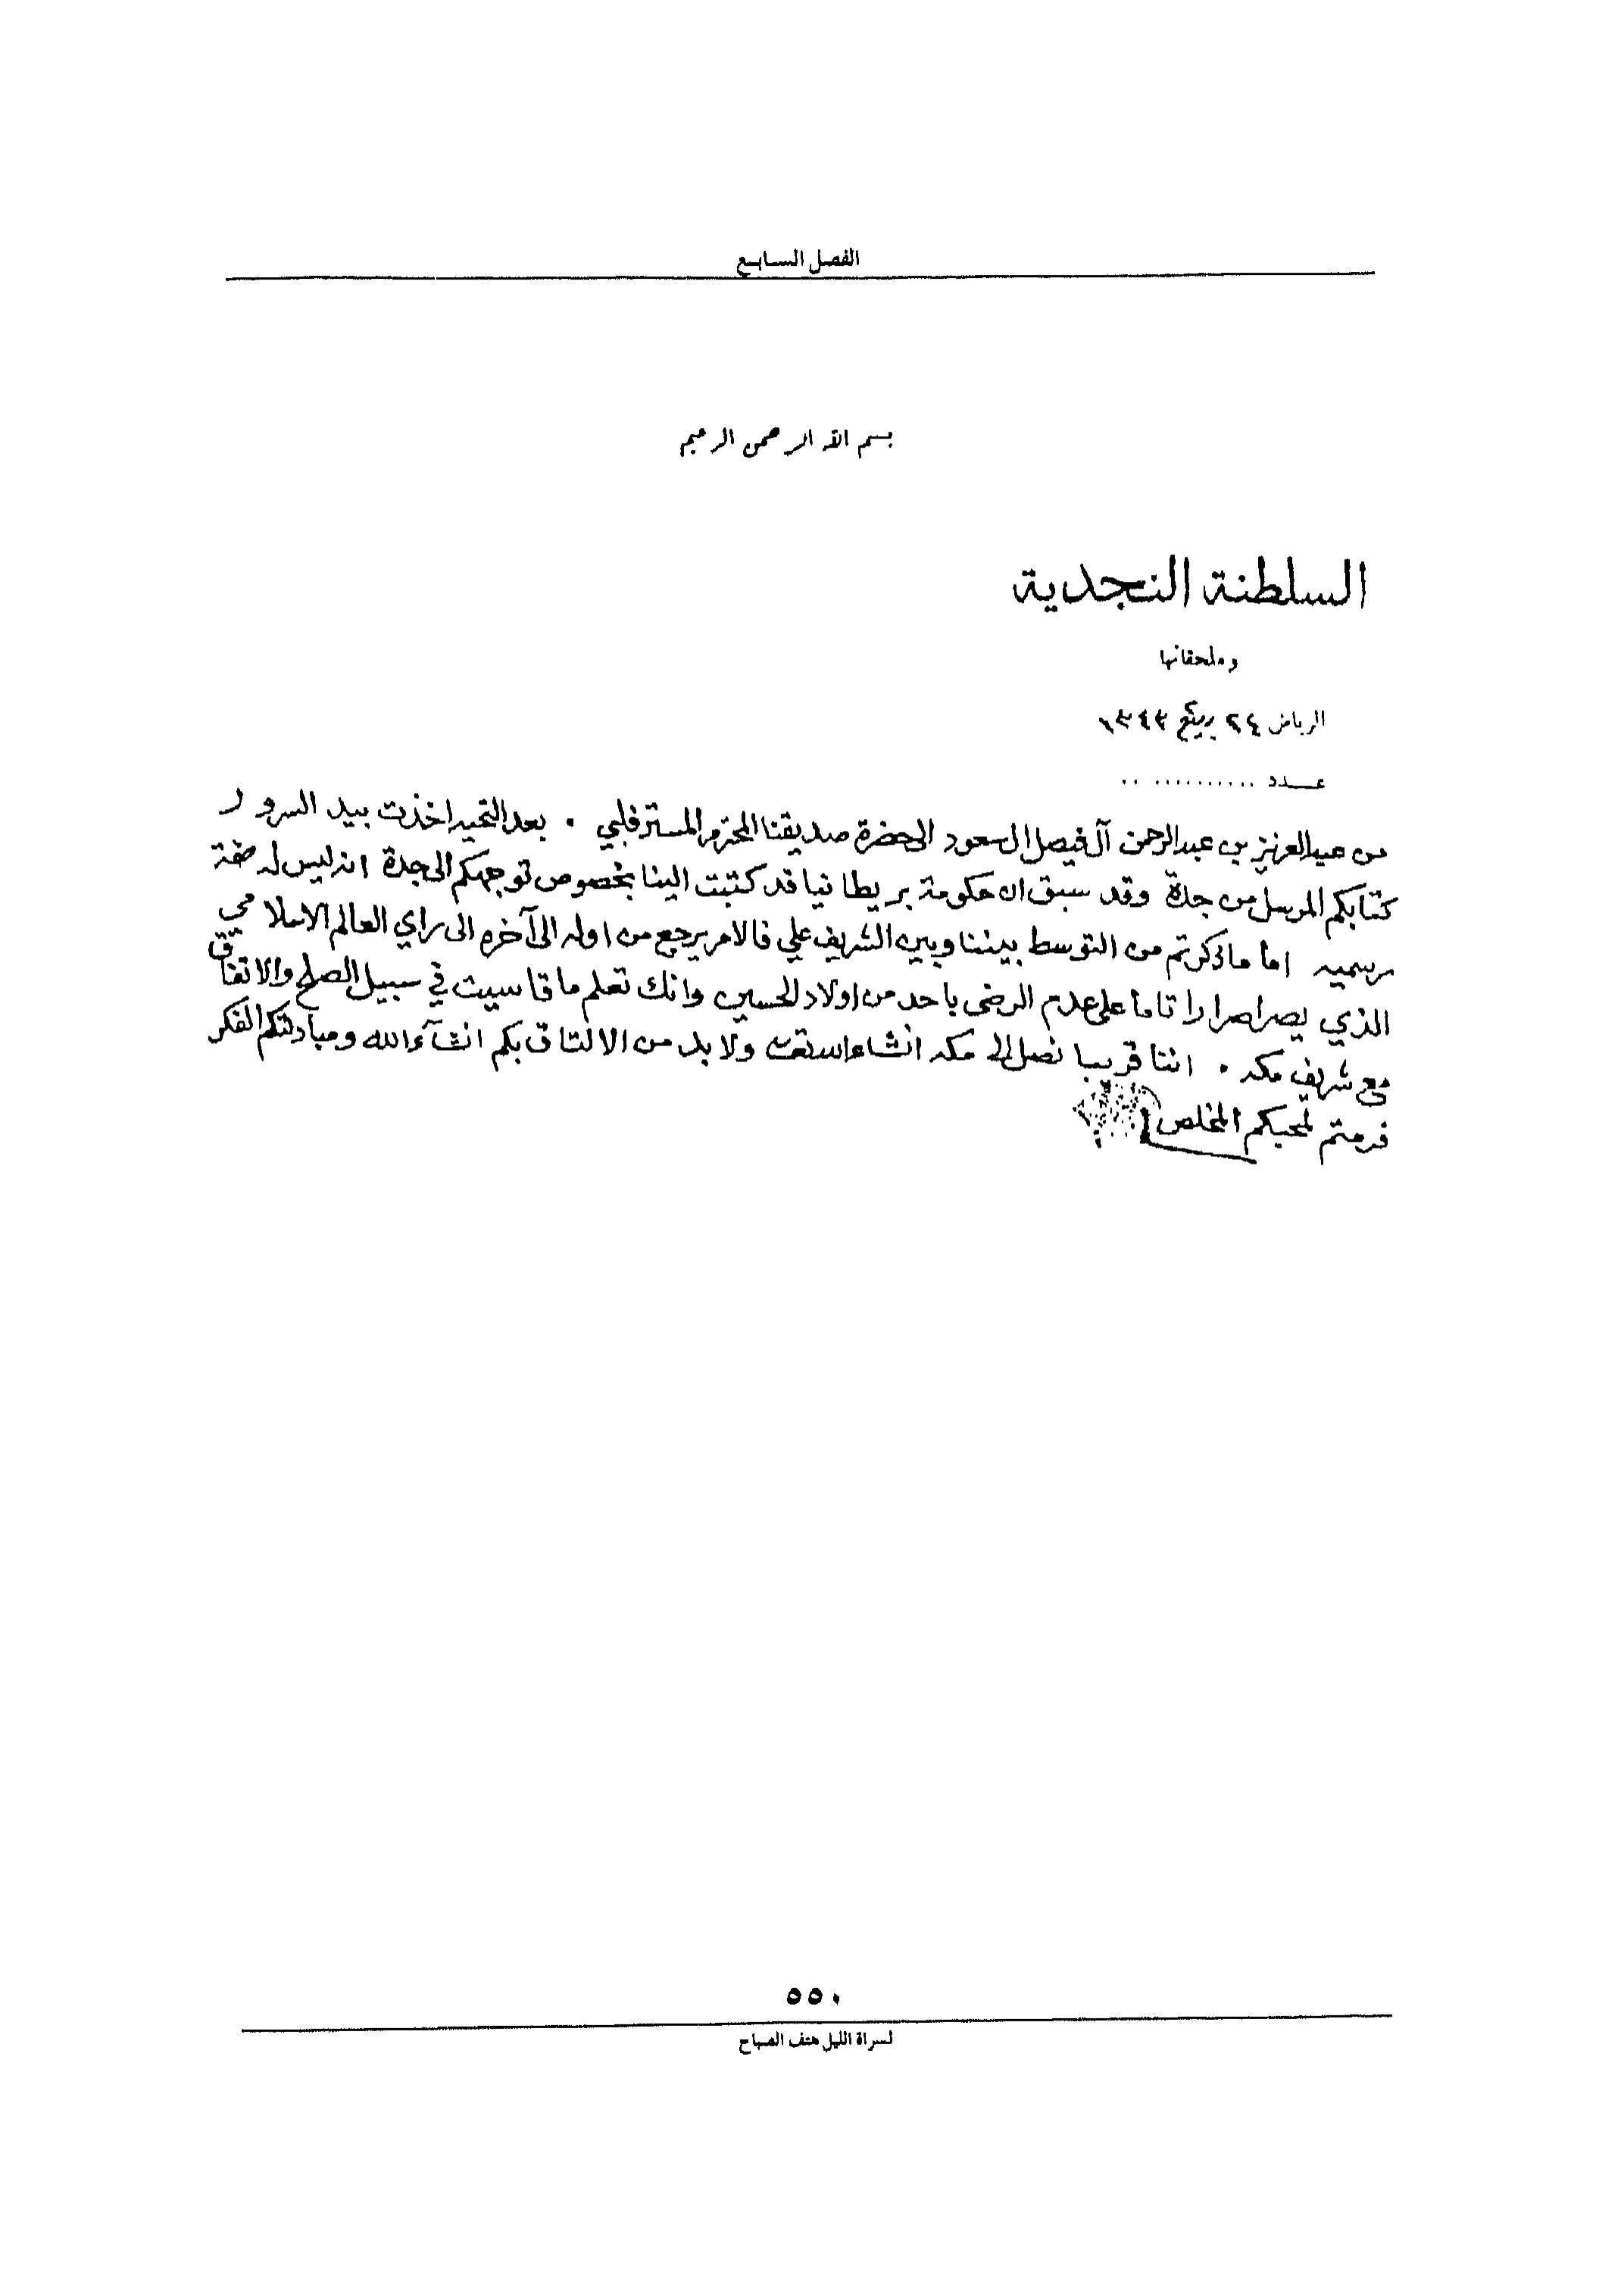 الفصل السابع
بسم الله الرحمن الرحيم
السلطنة النجدية
وملحقاتها
الرياض ٢٤ ربيع ١٣٤٣
عدد .......... ..
من عبدالعزيز بن عبدالرحمن آل فيصل ال سعود الى حضرة صديقنا المحترم المستر فلبي . بعد التحيه اخذت بيد السرور
كتابكم المرسل من جدة وقد سبق ان حكومة بريطانيا قد كتبت الينا بخصوص توجهكم الى جدة انه ليس له صفة
رسميه اما ما ذكرتم من التوسط بيننا وبين الشريف علي فالامر يرجع من اوله الى آخره الى راي العالم الاسلامي
الذي يصر اصرارا تاما على عدم الرضى باحد من اولاد الحسين وانك تعلم ما قاسيت في سبيل الصلح والاتفاق
مع شريف مكه . اننا قريبا نصل الى مكه انشاء الله ولا بد من الالتاق بكم انشآء الله ومبادلتكم الفكر
فدمتم لمحبكم المخلص
٥٥٠
لسراة الليل هتف الصباح